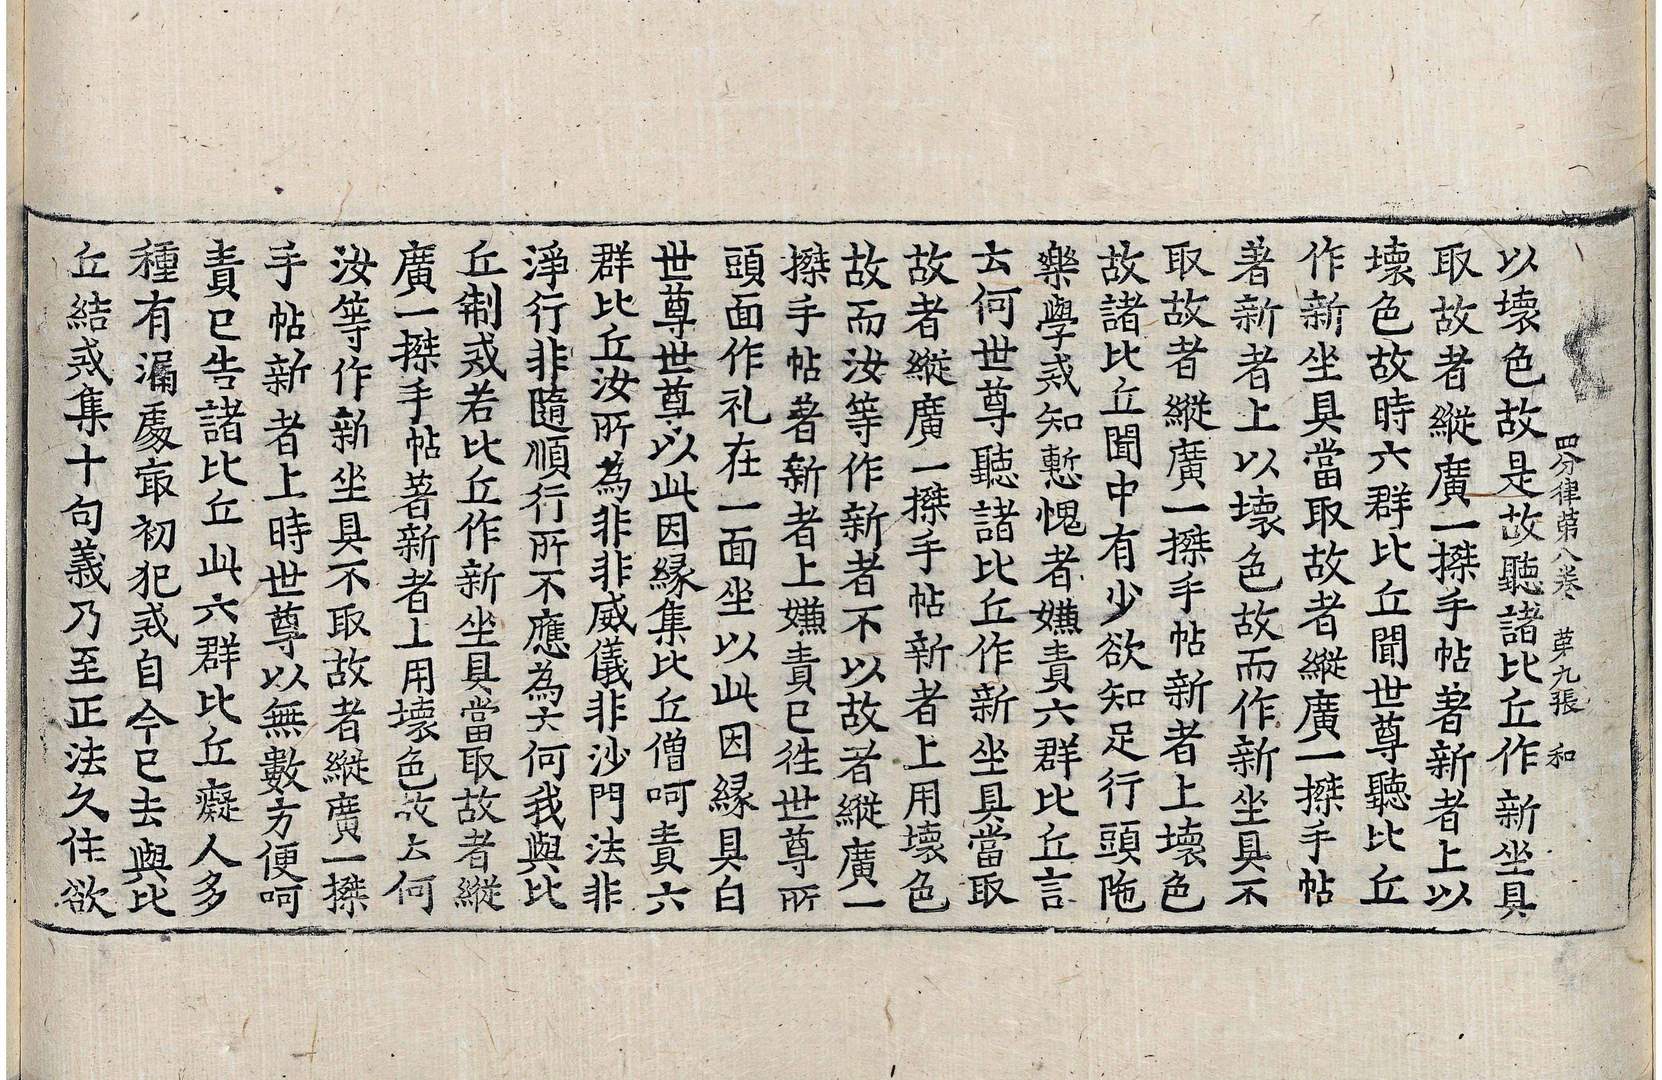 四分律第八卷　第九張　和
以壞色故是故聽諸比丘作新坐具
取故者縱廣一搩手帖著新者上以
壞色故時六群比丘聞世尊聽比丘
作新坐具當取故者縱廣一搩手帖
著新者上以壞色故而作新坐具不
取故者縱廣一搩手帖新者上壞色
故諸比丘聞中有少欲知足行頭陁
樂學戒知慙愧者嫌責六群比丘言
去何世尊聽諸比丘作新坐具當取
故者縱廣一搩手帖新者上用壞色
故而汝等作新者不以故者縱廣一
搩手帖著新者上嫌責已徃世尊所
頭面作礼在一面坐以此因縁具白
世尊世尊以此因縁集比丘僧呵責六
群比丘汝所為非非威儀非沙門法非
淨行非隨順行所不應為云何我與比
丘制戒若比丘作新坐具當取故者縱
廣一搩手帖著新者上用壞色故云何
汝等作新坐具不取故者縱廣一搩
手帖新者上時世尊以無數方便呵
責已告諸比丘此六群比丘癡人多
種有漏處㝡初犯戒自今已去與比
丘結戒集十句義乃至正法久住欲